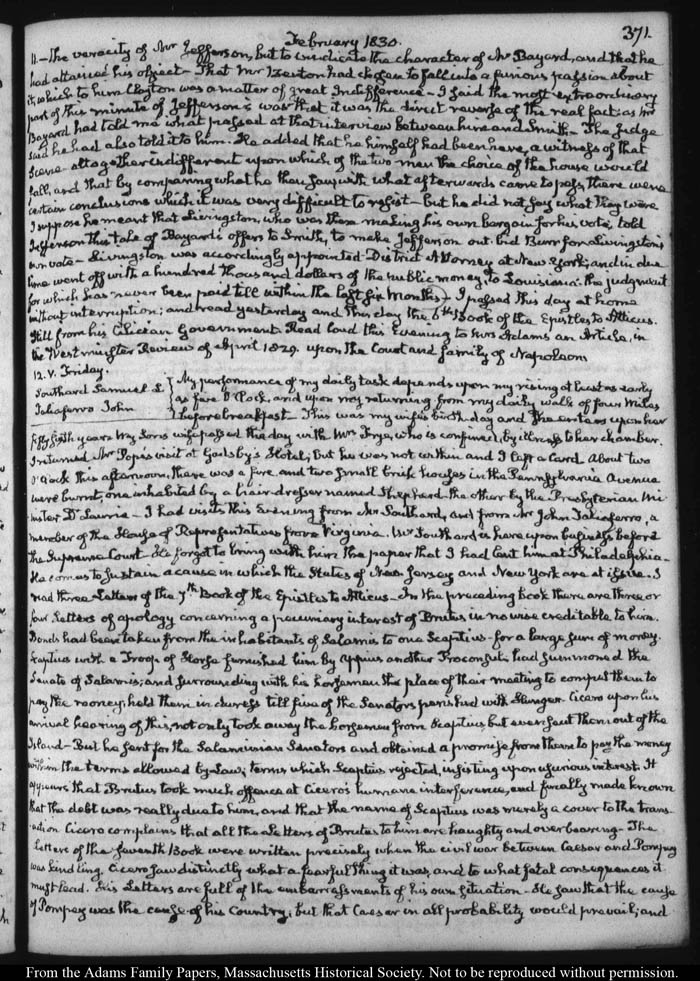 February 1830.
371.
11.— the veracity of Mr Jefferson, but to vindicate the character of Mr Bayard, and that he
had attained his object— That Mr Livingston had chosen to fall into a furious passion about
it, which to him Clayton was a matter of great Indifference— I said the most extraordinary
part of this minute of Jefferson's was that it was the direct reverse of the real fact; as Mr
Bayard had told me what passed at that interview between him and Smith— The Judge
said he had also told it to him. He added that he himself had been here, a witness of that
Scene— altogether indifferent upon which of the two men the choice of the house would
fall, and that by comparing what he then saw, with what afterwards came to pass, there were
certain conclusions which it was very difficult to resist— but he did not say what they were
I suppose he meant that Livingston, who was then making his own bargain for his vote, told
Jefferson this tale of Bayard's offers to Smith, to make Jefferson out bid Burr for Livingston's
own vote— Livingston was accordingly appointed District Attorney at New York; and in due
time went off with a hundred thousand dollars of the public money, to Louisiana. the judgment
for which has never been paid till within the last six months— I passed this day at home
without interruption; and read yesterday and this day the 6th Book of the Epistles to Atticus.
Still from his Cilician Government. Read loud this Evening to Mrs Adams an Article, in
the Westminster Review of April 1829. upon the Court and family of Napoleon
12. V. Friday.
Southard Samuel L } My performance of my daily task depends upon my rising at least as early
Taliaferro John } as five O'Clock, and upon my returning from my daily walk of four Miles
before breakfast— This was my wife's birth-day and she enters upon her
fifty sixth year. My Sons wife passed the day with Mrs Frye, who is confined, by illness to her chamber.
I returned Mr Pope's visit at Gadsby's Hotel; but he was not within and I left a Card. About two
O'Clock this afternoon, there was a fire, and two small brick houses in the Pennsylvania Avenue
were burnt; one inhabited by a hair-dresser named Shepherd the other by the Presbyterian Mi-
nister Dr Laurie— I had visits this Evening from Mr Southard, and from Mr John Taliaferro, a
member of the House of Representatives from Virginia. Mr Southard is here upon business before
the Supreme Court— He forgot to bring with him the paper that I had lent him at Philadelphia—
He comes to sustain a cause in which the States of New-Jersey and New York are at issue. I
read three Letters of the 7th Book of the Epistles to Atticus— In the preceding book there are three or
four Letters of apology concerning a pecuniary interest of Brutus in no wise creditable to him.
Bonds had been taken from the inhabitants of Salamis to one Scaptius— for a large sum of money.
Scaptius with a Troop of Horse furnished him by Appius another Proconsul, had summoned the
Senate of Salamis; and surrounding with his horsemen the place of their meeting to compel them to
pay the money, held them in duress till five of the Senators perished with Hunger. Cicero upon his
arrival hearing of this, not only took away the horsemen from Scaptius, but even sent them out of the
Island— But he sent for the Salaminian Senators and obtained a promise from them to pay the money
within the terms allowed by Law; terms which Scaptius rejected, insisting upon usurious interest. It
appears that Brutus took much offence at Cicero's humane interference, and finally made known
that the debt was really due to him, and that the name of Scaptius was merely a cover to the trans-
action Cicero complains that all the Letters of Brutus to him are haughty and overbearing— The
Letters of the seventh Book were written precisely when the civil war between Caesar and Pompey
was kindling. Cicero saw distinctly what a fearful thing it was, and to what fatal consequences it
must lead. His Letters are full of the embarrassments of his own situation— He saw that the cause
of Pompey was the cause of his Country; but that Caesar in all probability would prevail; and
From the Adams Family Papers, Massachusetts Historical Society. Not to be reproduced without permission.